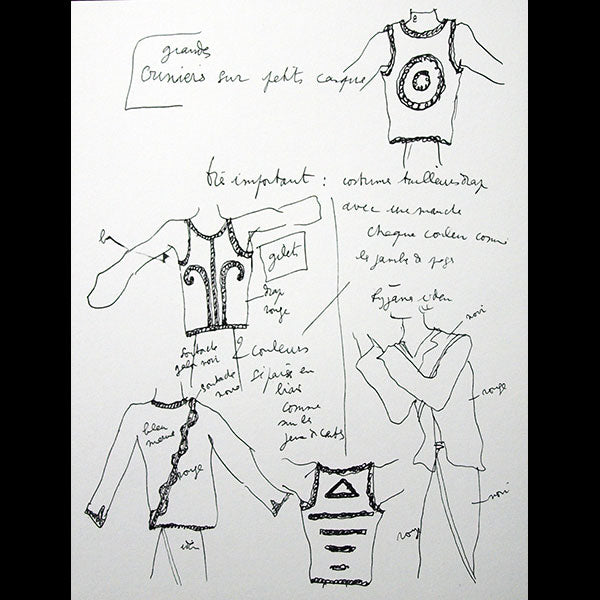 grandes
sur petits casques
très important : costume tailleur drap
avec une manche
chaque couleur comme
les jambes de page
gilets
drap
rouge
soutache
noire
2 couleurs
séparées en
biais
comme
sur les
jeux de cartes
bleu
marine
rouge
noir
rouge
noir
rouge